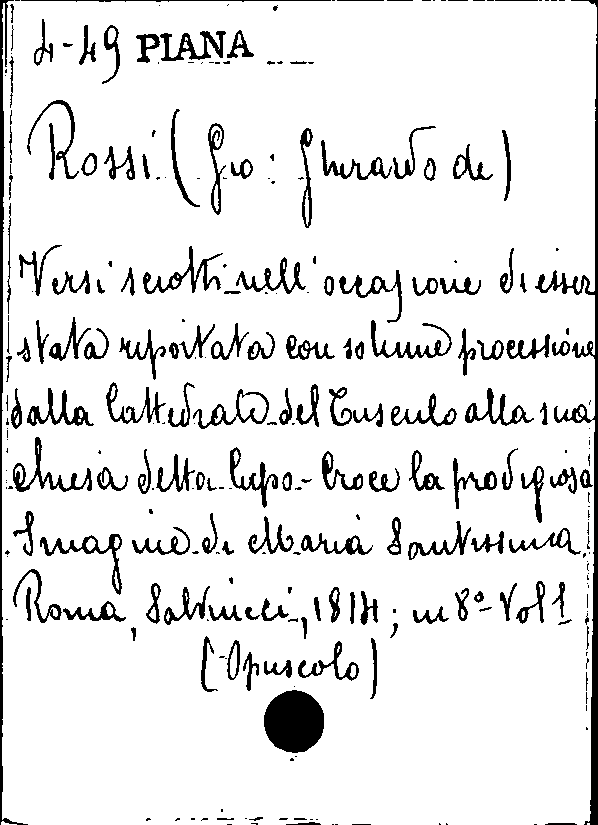 4-49 PIANA
Rossi (Gio: Gherardo de)
Versi sciolti nell'occasione di esser
stata riportata con solenne processione
dalla Cattedrale del Tusculo alla sua
chiesa detta Capo-Croce la prodigiosa
Imagine di Maria Santissima.
Roma, Salviucci, 1814; in 8º Vol 1
(Opuscolo)